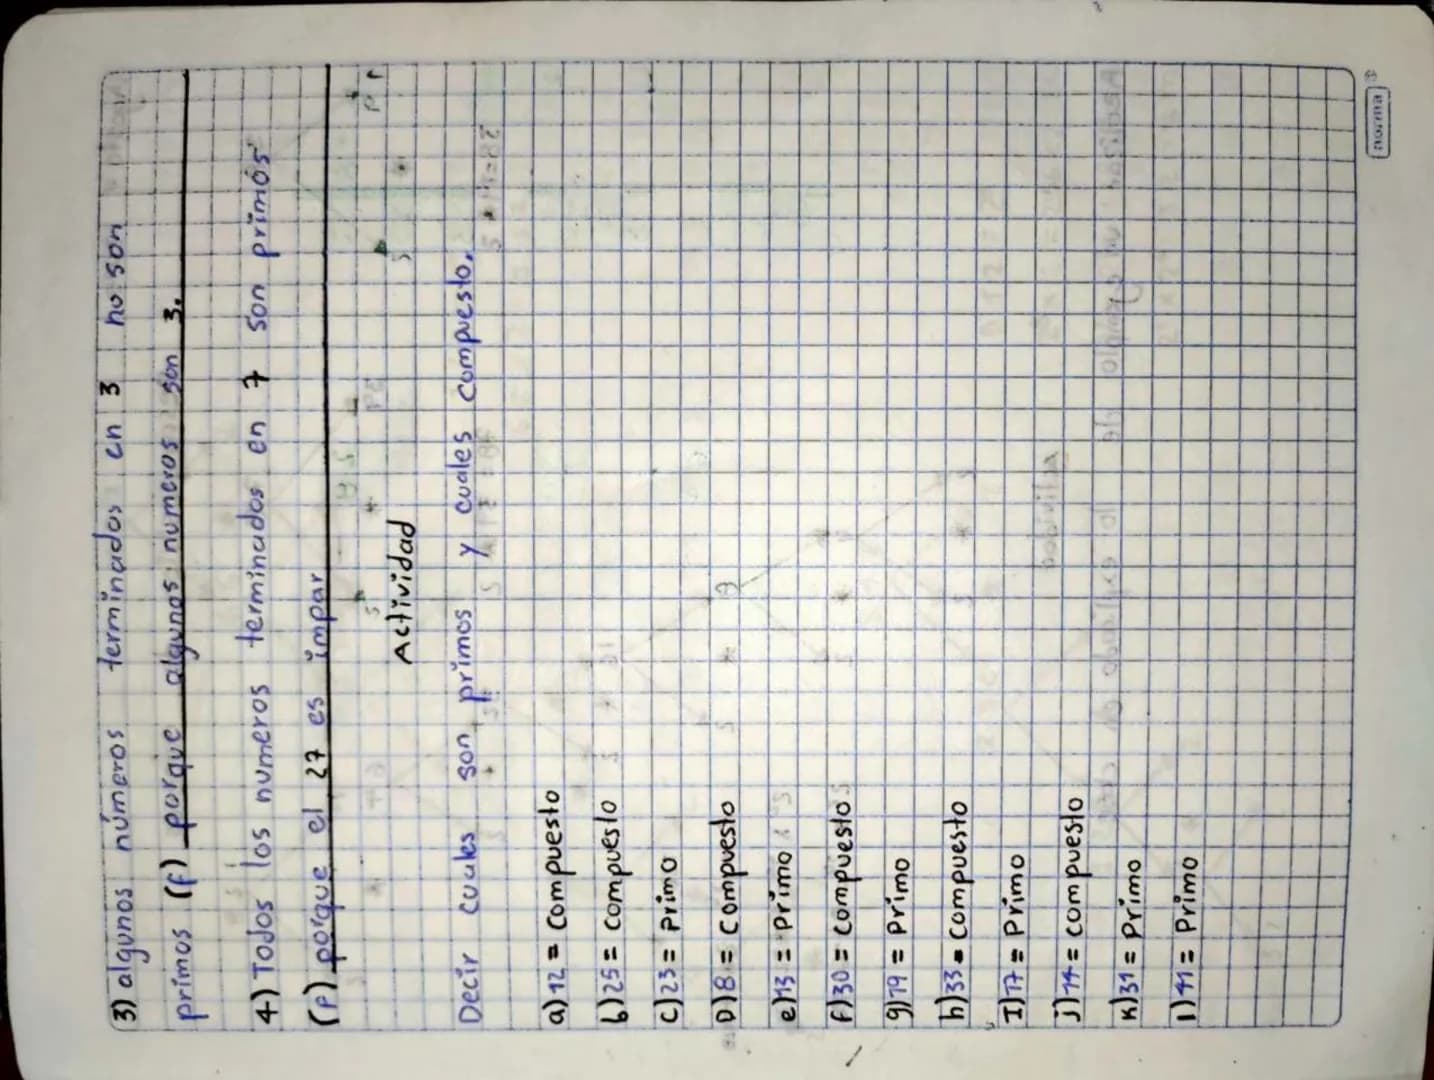 3) algunos números terminados en 3 no son
primos (f) porque algunos numeros son 3.
4) Todos los numeros terminados en 7 son primos
(f) porque el 27 es impar
Actividad
Decir cuales son primos y cuales compuesto.
a) 12 = compuesto
b) 25 = compuesto
c) 23 = primo
D) 8 = compuesto
e) 13 = primo
f) 30 = compuesto
g) 19 = primo
h) 33 = compuesto
I) 17 = primo
j) 14 = compuesto
K) 31 = primo
l) 41 = primo
norma